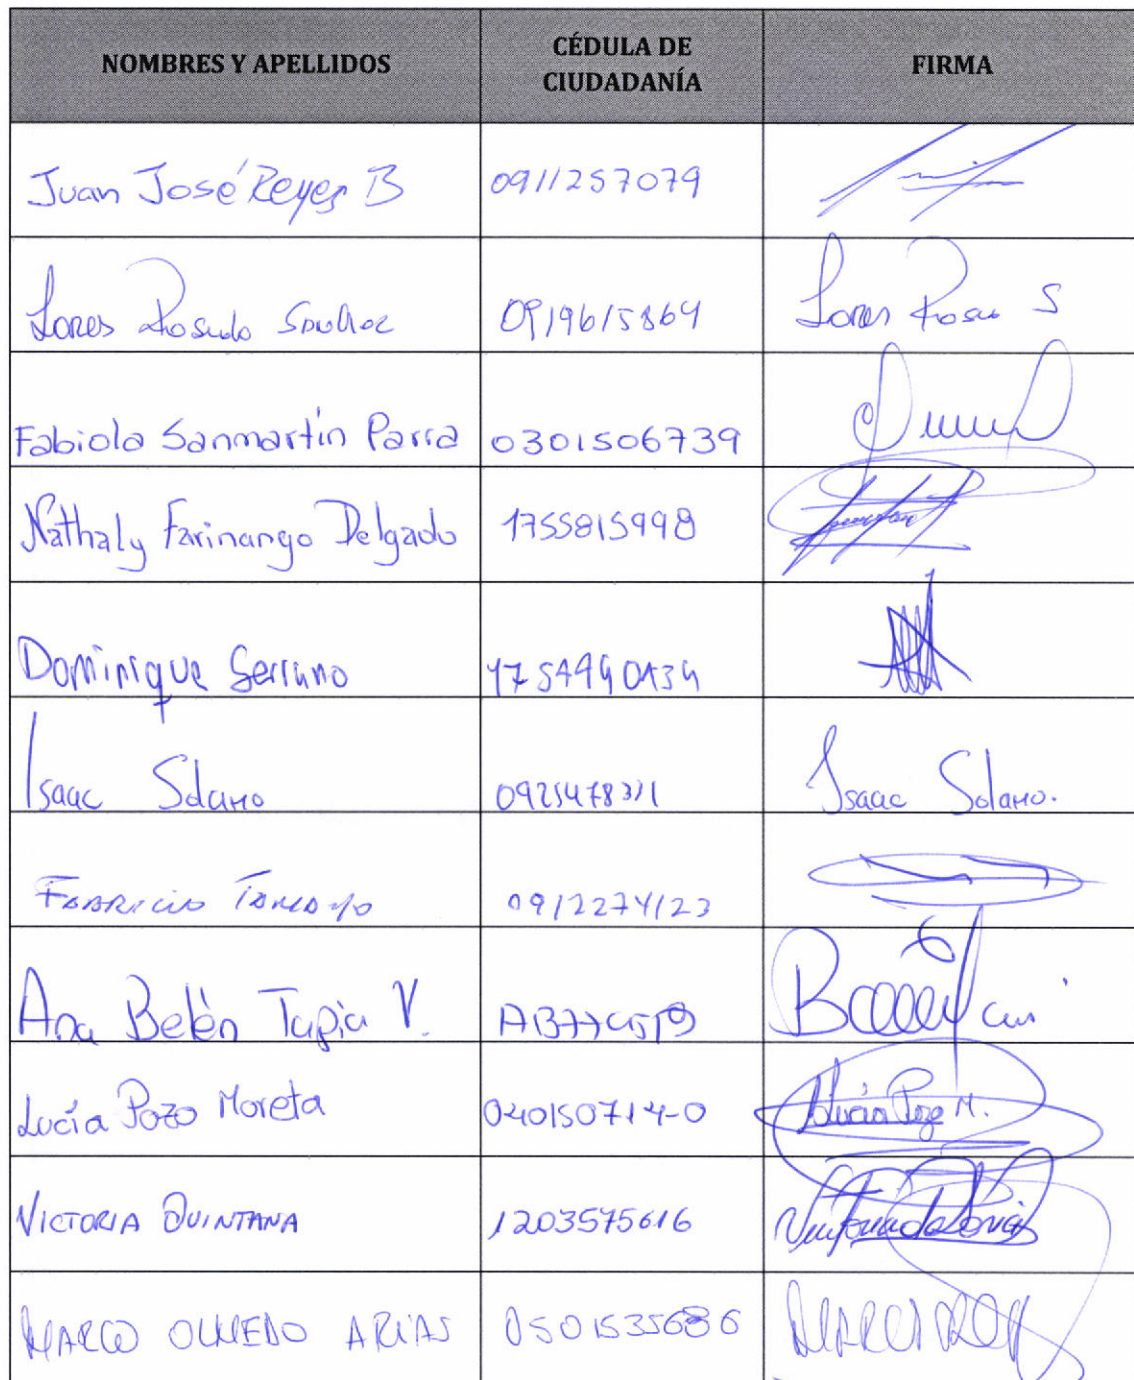 NOMBRES Y APELLIDOS CÉDULA DE CIUDADANÍA FIRMA
Juan José Reyes B 0911257079
Rosado 0919615869
Fabiola Sanmartín Parra 0301506739
Nathaly Farinango Delgado 1755815998
Dominique Serrano
Isaac Solano Isaac Solano.
Fabricio Tamayo 0912274123
Ana Belén Tapia V.
Lucía Pozo Moreta 040150714-0 Lucía Pozo M.
VICTORIA QUINTANA 1203575616
MARCO OLMEDO ARIAS